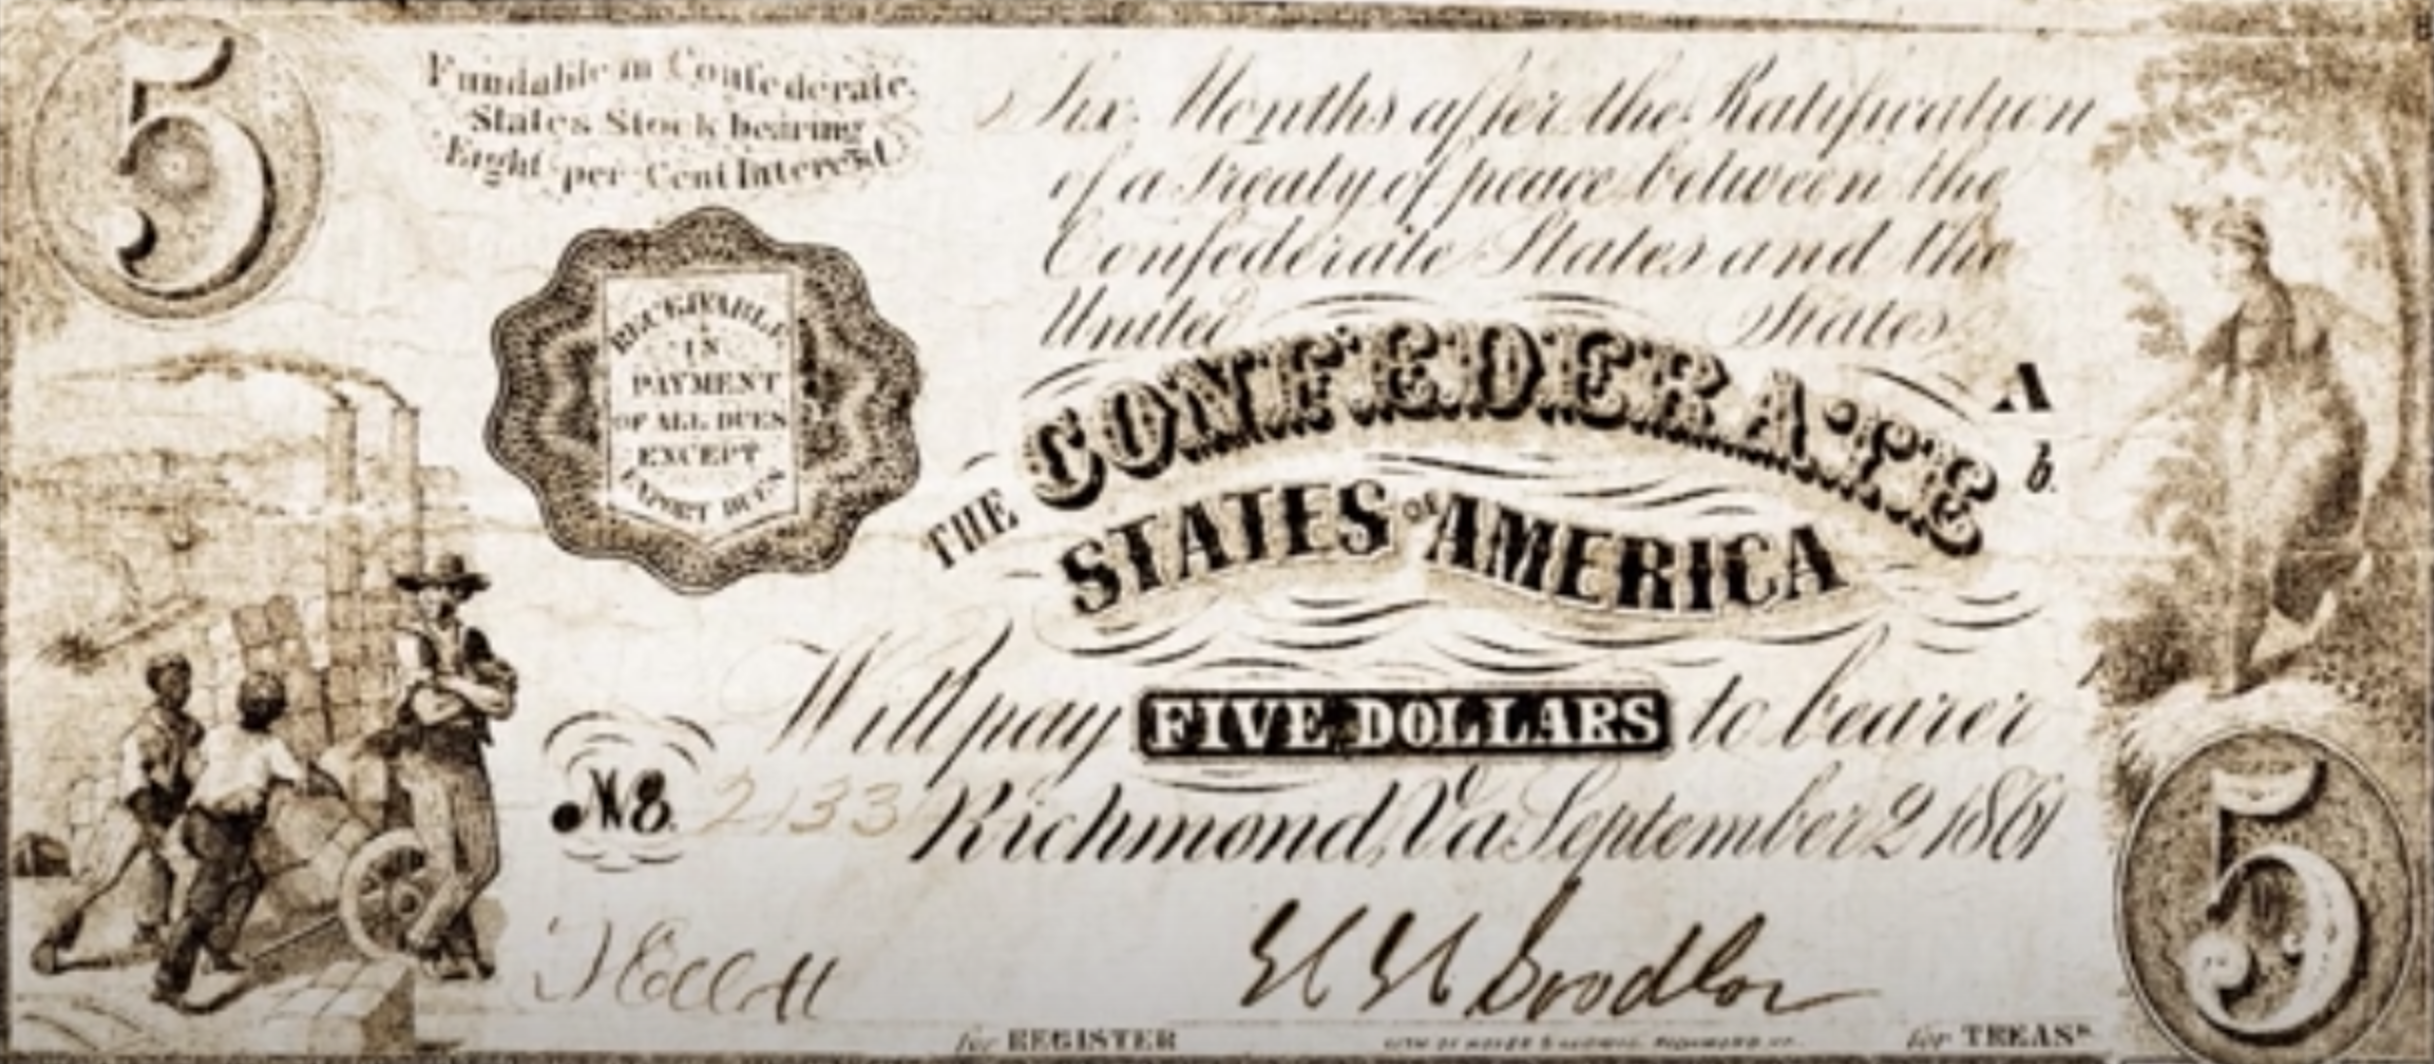 5
Fundable in Confederate
States Stock bearing
Eight per Cent Interest
Six Months after the Ratification
of a Treaty of peace between the
Confederate States and the
United States
RECEIVABLE
IN
PAYMENT
OF ALL DUES
EXCEPT
EXPORT DUES
THE CONFEDERATE
A
b.
STATES OF AMERICA
Will pay FIVE DOLLARS to bearer
No. 2133 Richmond, Va September 2 1861
5
for REGISTER
for TREASR